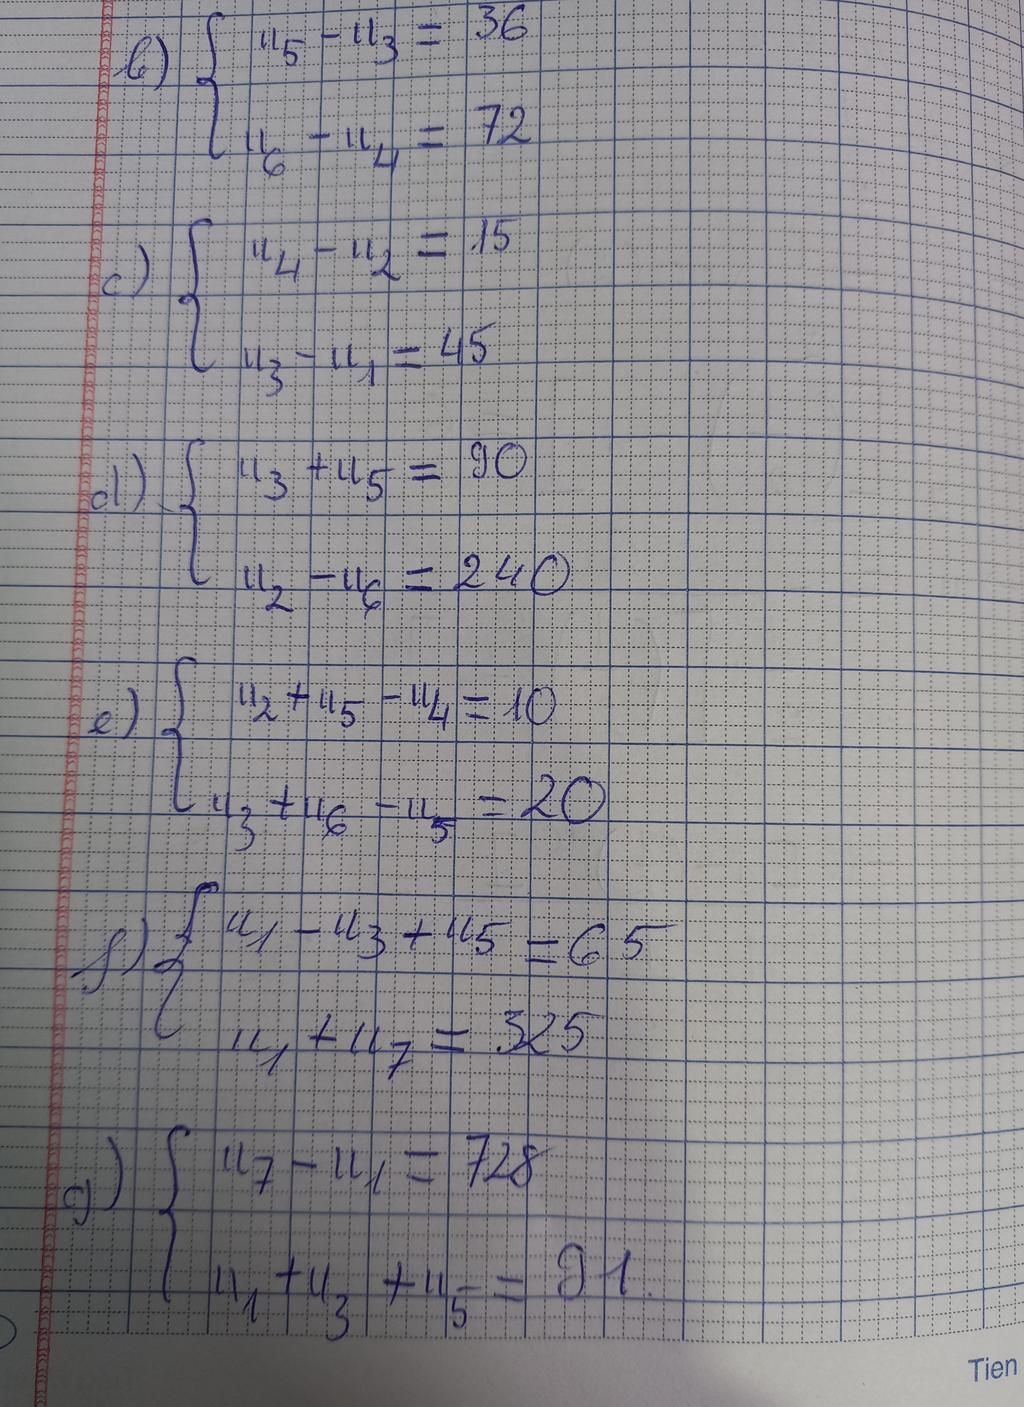 b) { u₅ - u₃ = 36
u₆ - u₄ = 72
c) { u₄ - u₂ = 15
u₃ - u₁ = 45
d) { u₃ + u₅ = 90
u₂ - u₆ = 240
e) { u₂ + u₅ - u₄ = 10
u₃ + u₆ - u₅ = 20
f) { u₁ - u₃ + u₅ = 65
u₁ + u₇ = 325
g) { u₇ - u₁ = 728
u₁ + u₃ + u₅ = 91.
Tien